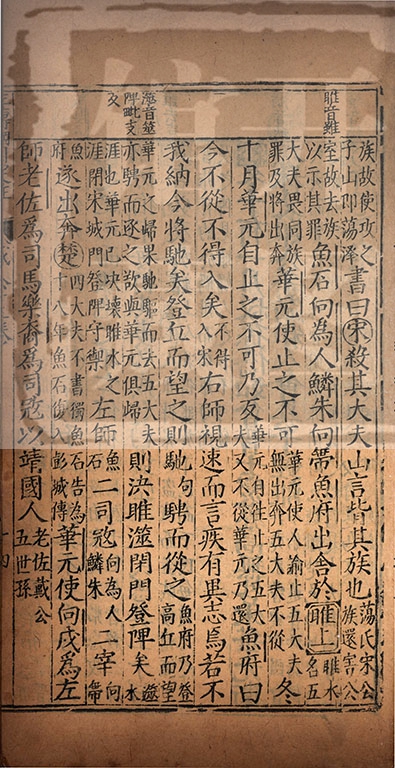 睢音雖
澨音筮
陴毗支
反
族故使攻之
子山即蕩澤
書曰宋殺其大夫山言背其族也
蕩氏宋公
族還害公
室故去族
以示其罪
魚石向為人鱗朱向帶魚府出舍於睢上
睢水
名五
大夫畏同族
罪及將出奔
華元使止之不可
華元使人諭止五大夫
無出奔五大夫不從
冬
十月華元自止之不可乃反
華元自往止之五大
夫又不從華元乃還
魚府曰
今不從不得入矣
不得
入宋
右師視速而言疾有異志焉若不
我納今將馳矣登丘而望之則馳
句
騁而從之
魚府乃登
高丘而望
華元之歸果馳驅而去五大夫
亦騁而逐之欲與華元俱歸
則決睢澨閉門登陴矣
澨
水
涯也華元已決壞睢水之
涯閉宋城門登陴守禦
左師
魚
石
二司寇
向為人
鱗朱
二宰
向
帶
魚
府
遂出奔楚
四大夫不書獨魚石告為
十八年魚石復入彭城傳
華元使向戌為左
師老佐為司馬樂裔為司寇以靖國人
老佐戴公
五世孫